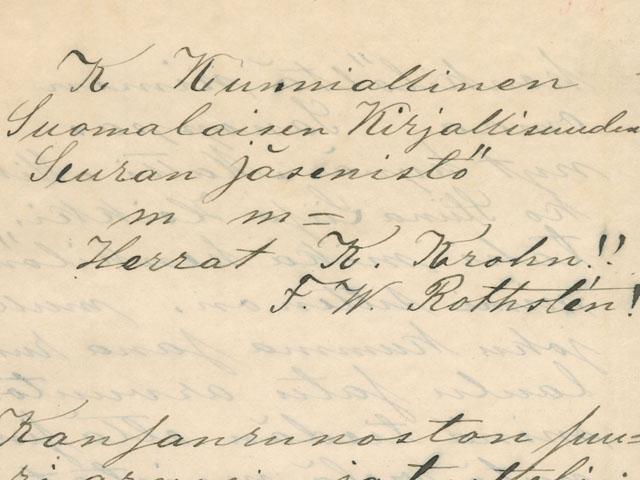 K Kunniallinen
Suomalaisen Kirjallisuuden
Seuran jäsenistö
m m =
Herrat K. Krohn!!
F. W. Rothstén!
Kansanrunoston suu=